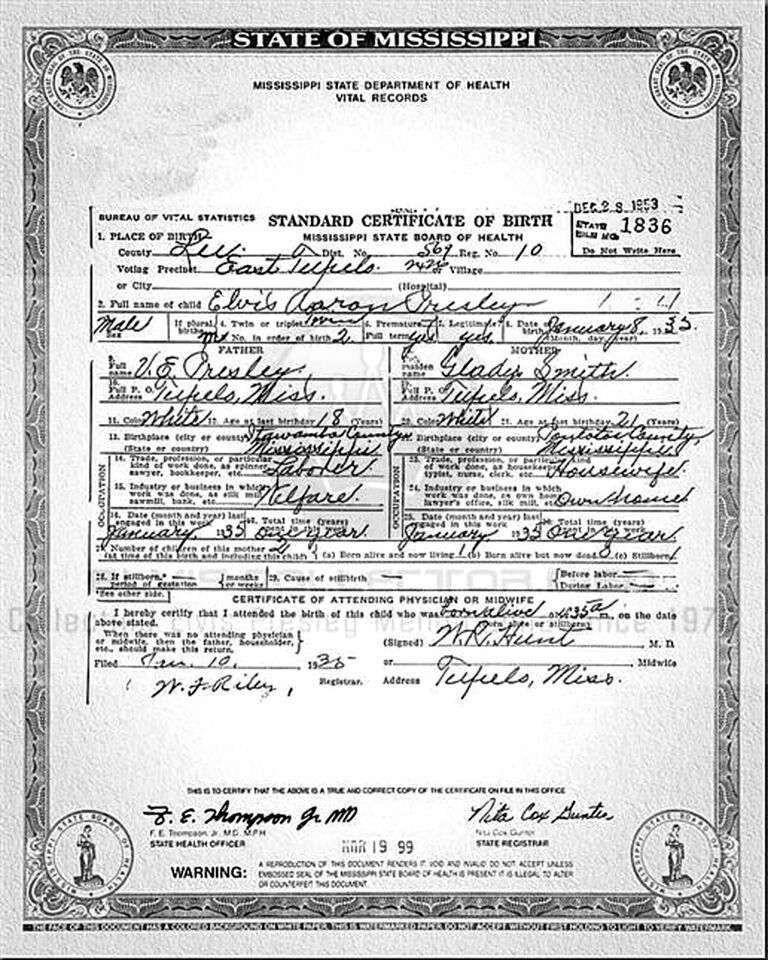 STATE OF MISSISSIPPI
MISSISSIPPI STATE DEPARTMENT OF HEALTH
VITAL RECORDS
DEC 28 1953
BUREAU OF VITAL STATISTICS STANDARD CERTIFICATE OF BIRTH STATE FILE NO. 1836
1. PLACE OF BIRTH MISSISSIPPI STATE BOARD OF HEALTH Do Not Write Here
County Lee Dist. No. 569 Reg. No. 10
Voting Precinct East Tupelo or Village
or City (Hospital)
2. Full name of child Elvis Aaron Presley
Male If plural births 4. Twin or triplet Twin 6. Premature 7. Legitimate? 8. Date of birth January 8, 1935
Sex No. in order of birth 2 Full term yes yes. (Month, day, year)
FATHER MOTHER
9. Full name V. E. Presley Full maiden name Gladys Smith
10. Full P. O. Address Tupelo, Miss. Full P. O. Address Tupelo, Miss.
11. Color White 12. Age at last birthday 18 (Years) 20. Color White 21. Age at last birthday 21 (Years)
13. Birthplace (city or county) Itawamba County Birthplace (city or county) Pontotoc County
(State or country) Mississippi (State or country) Mississippi
OCCUPATION
14. Trade, profession, or particular kind of work done, as spinner, sawyer, bookkeeper, etc. Laborer 23. Trade, profession, or particular kind of work done, as housekeeper, typist, nurse, clerk, etc. Housewife
15. Industry or business in which work was done, as silk mill, sawmill, bank, etc. Welfare. 24. Industry or business in which work was done, as own home, lawyer's office, silk mill, etc. Own home
OCCUPATION
16. Date (month and year) last engaged in this work January 1935 17. Total time (years) spent in this work One year 25. Date (month and year) last engaged in this work January 1935 Total time (years) spent in this work One year
27. Number of children of this mother 2
(at time of this birth and including this child) (a) Born alive and now living 1 (b) Born alive but now dead (c) Stillborn 1
28. If stillborn, period of gestation — months or weeks 29. Cause of stillbirth — Before labor —
During Labor —
*See other side.
CERTIFICATE OF ATTENDING PHYSICIAN OR MIDWIFE
I hereby certify that I attended the birth of this child who was born alive at 4:35 a m., on the date
above stated. Born alive or stillborn
When there was no attending physician or midwife, then the father, householder, etc., should make this return. (Signed) W.R. Hunt M. D.
Filed Jan. 10, 1935 or Midwife
W. F. Riley, Registrar. Address Tupelo, Miss.
THIS IS TO CERTIFY THAT THE ABOVE IS A TRUE AND CORRECT COPY OF THE CERTIFICATE ON FILE IN THIS OFFICE
F. E. Thompson Jr MD Nita Cox Gunter
F. E. Thompson, Jr., M.D., M.P.H. Nita Cox Gunter
STATE HEALTH OFFICER MAR 19 99 STATE REGISTRAR
WARNING: A REPRODUCTION OF THIS DOCUMENT RENDERS IT VOID AND INVALID. DO NOT ACCEPT UNLESS
EMBOSSED SEAL OF THE MISSISSIPPI STATE BOARD OF HEALTH IS PRESENT. IT IS ILLEGAL TO ALTER
OR COUNTERFEIT THIS DOCUMENT.
THE FACE OF THIS DOCUMENT HAS A COLORED BACKGROUND ON WHITE PAPER. THIS IS WATERMARKED PAPER. DO NOT ACCEPT WITHOUT FIRST HOLDING TO LIGHT TO VERIFY WATERMARK.